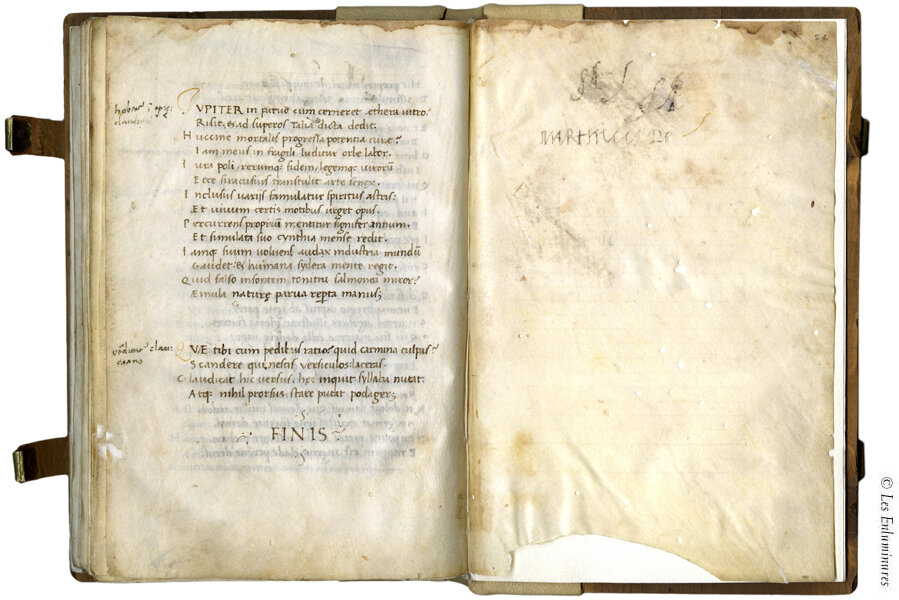 IVPITER in paruo cum cerneret æthera uitro.
Risit, & ad superos talia dicta dedit.
Huccine mortalis progressa potentia curæ?
Iam meus in fragili luditur orbe labor.
Iura poli, rerumq; fidem, legemq; uirorū
Ecce siracusius transtulit arte senex.
Inclusus varijs famulatur spiritus astris:
Æt uiuum certis motibus urget opus.
Percurrens propriū mentitur signifer annum.
Et simulata suo cynthia mense redit.
Iamq; suum voluens audax industria mundū
Gaudet: & humana sydera mente regit.
Quid falso insontem tonitru salmonea miror?
Æmula naturę parua reperta manus;
QVÆ tibi cum pedibus ratio? quid carmina culpas?
Scandere qui nescis, versiculos laceras.
Claudicat hic versus: hęc inquit syllaba nutat:
Atq; nihil prorsus stare putat podager;
FINIS
56
© Les Enluminures